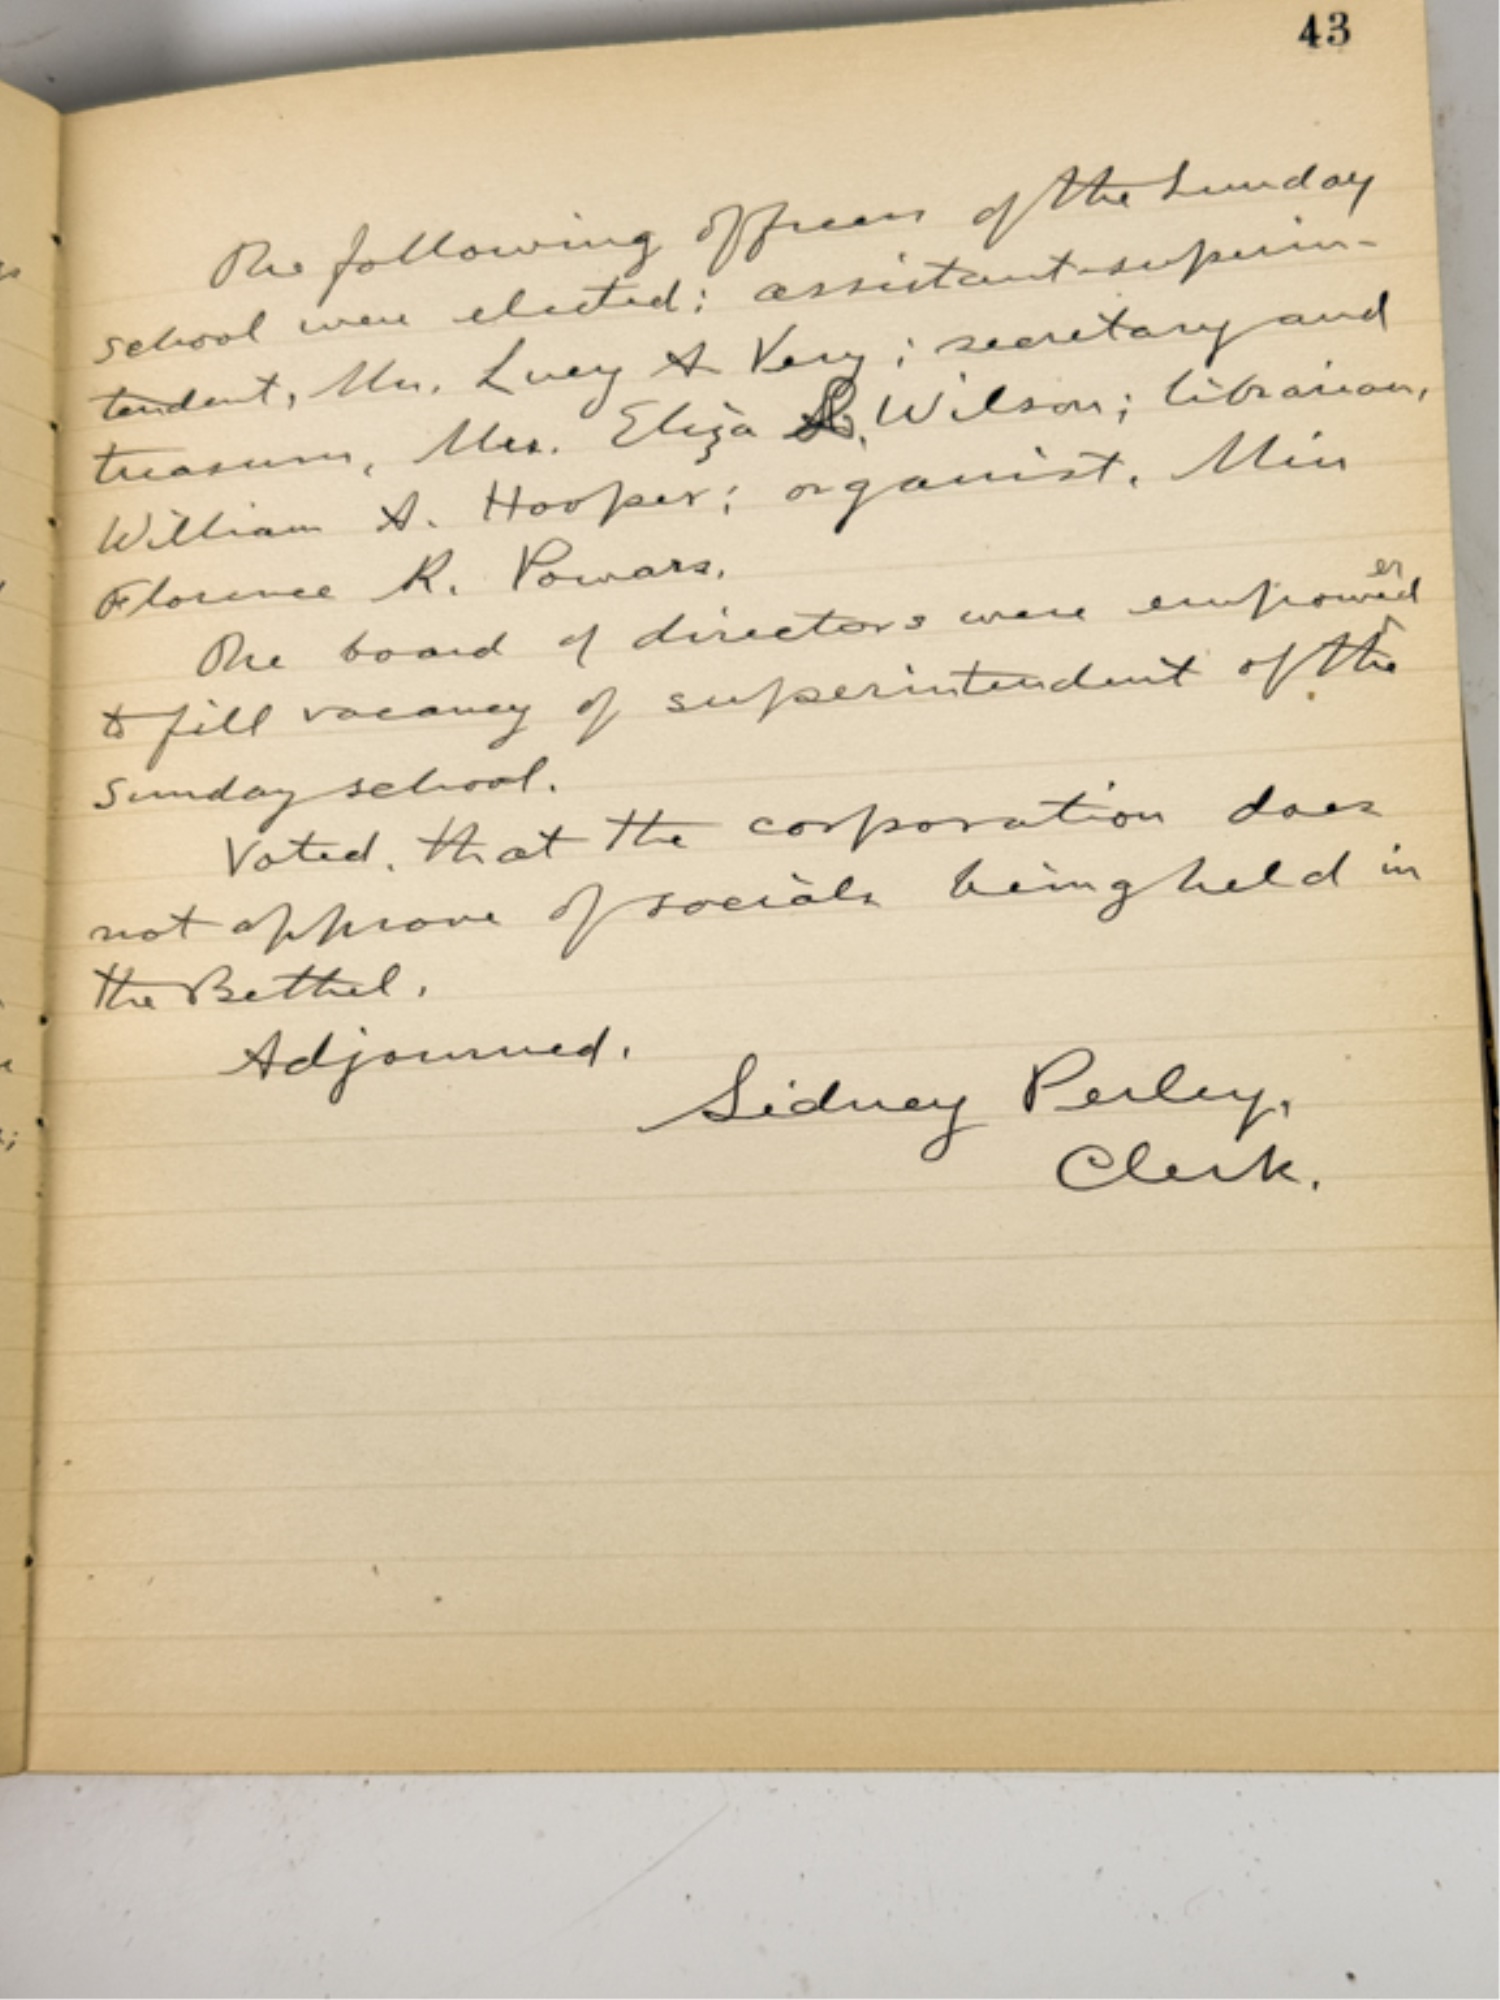 43
The following officers of the Sunday
school were elected: assistant-superin-
tendent, Mrs. Lucy A Very; secretary and
treasurer, Mrs. Eliza Wilson; librarian,
William A. Hooper; organist, Miss
Florence R. Powars.
The board of directors were empowered
to fill vacancy of superintendent of the
Sunday school.
Voted, that the corporation does
not approve of socials being held in
the Bethel.
Adjourned.
Sidney Perley,
Clerk.